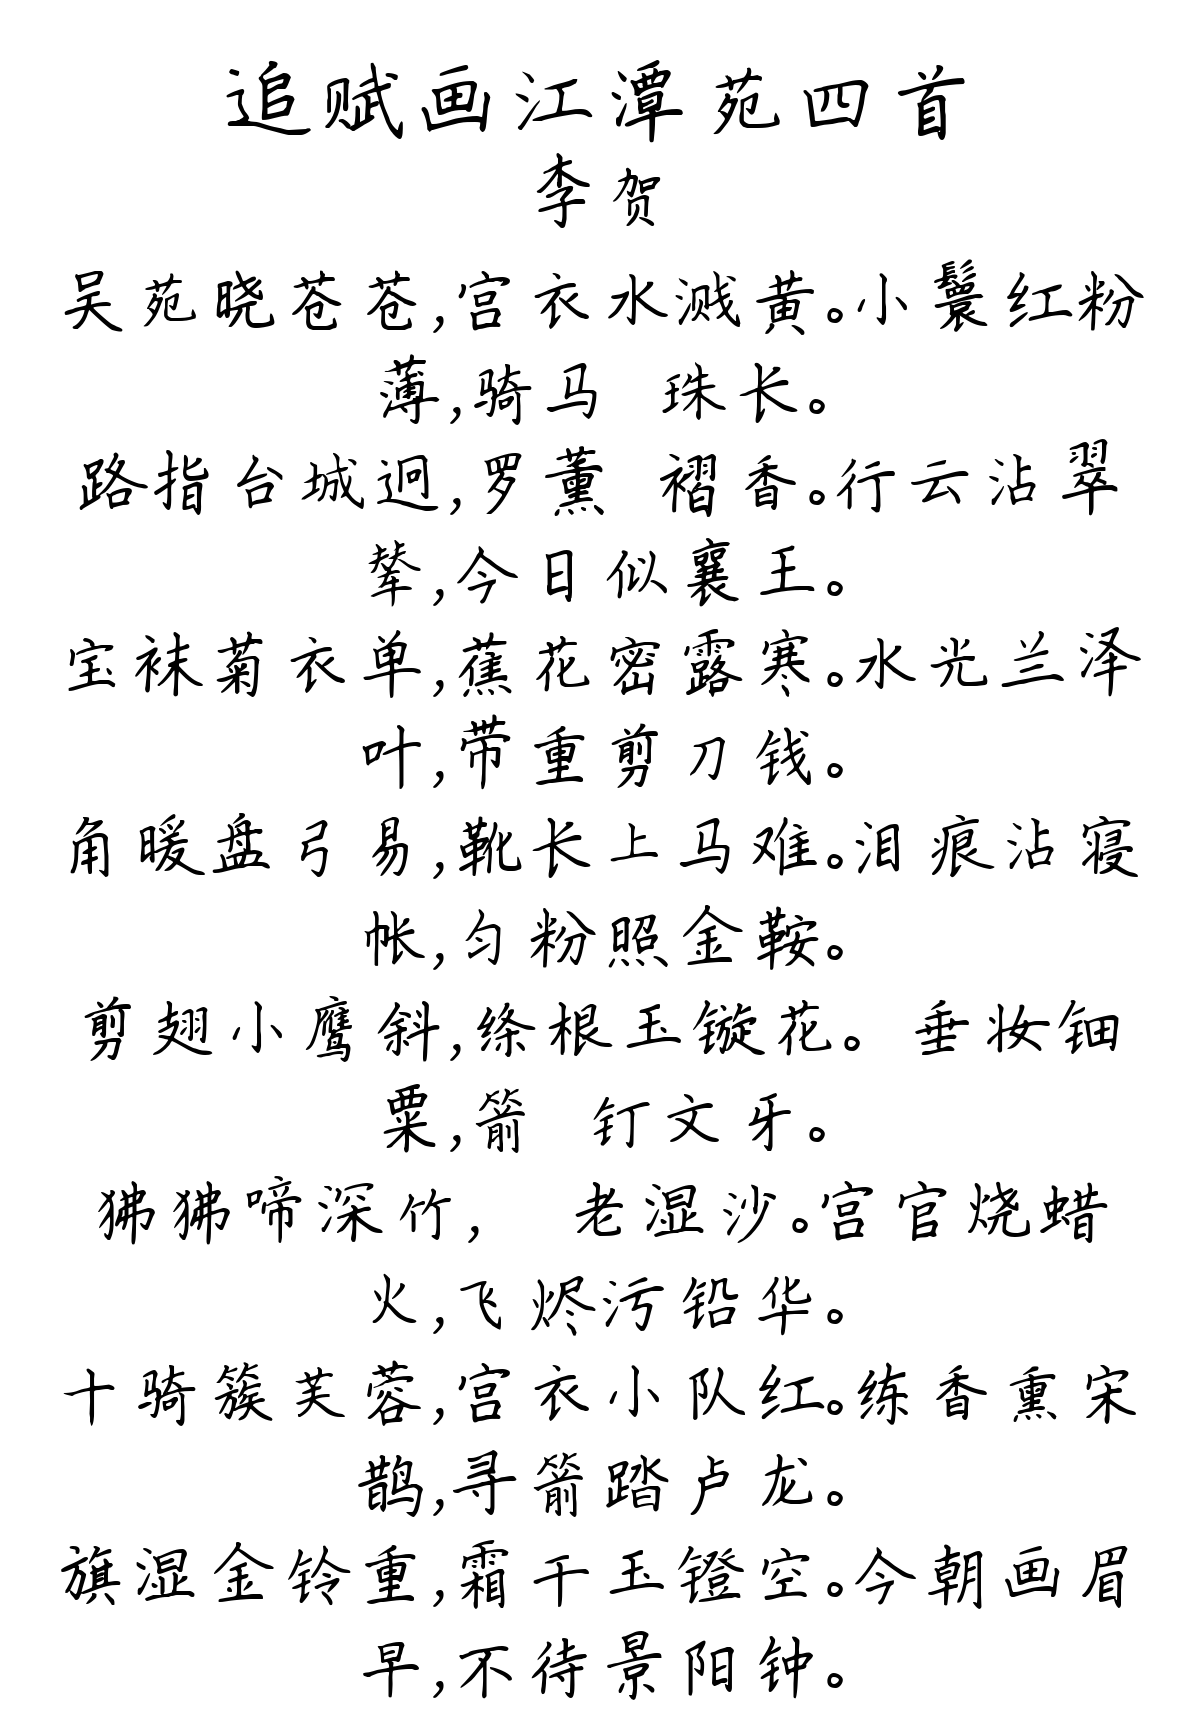 追赋画江潭苑四首
李贺
吴苑晓苍苍,宫衣水溅黄。小鬟红粉
薄,骑马 珠长。
路指台城迥,罗薰 褶香。行云沾翠
辇,今日似襄王。
宝袜菊衣单,蕉花密露寒。水光兰泽
叶,带重剪刀钱。
角暖盘弓易,靴长上马难。泪痕沾寝
帐,匀粉照金鞍。
剪翅小鹰斜,绦根玉镟花。 垂妆钿
粟,箭 钉文牙。
狒狒啼深竹, 老湿沙。宫官烧蜡
火,飞烬污铅华。
十骑簇芙蓉,宫衣小队红。练香熏宋
鹊,寻箭踏卢龙。
旗湿金铃重,霜干玉镫空。今朝画眉
早,不待景阳钟。